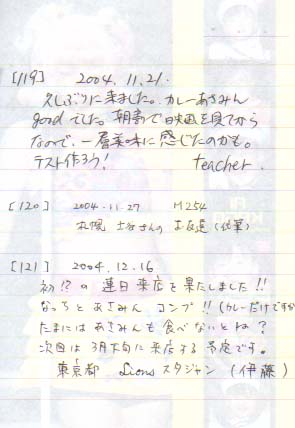 [119] 2004.11.21.
久しぶりに来ました。カレーあさみん
good でした。朝寄で映画を見てから
なので、一層美味に感じたのかも。
テスト作ろう! teacher.
[120] 2004.11.27 M254
さんのお友達(佐藤)
[121] 2004.12.16.
初!?の連日来店を果たしました!!
なっちとあさみん コンプ!!(カレーだけですが
たまにはあさみんも食べないとね?
次回は3月下旬に来店する予定です。
東京都 Lions スタジャン(伊藤)